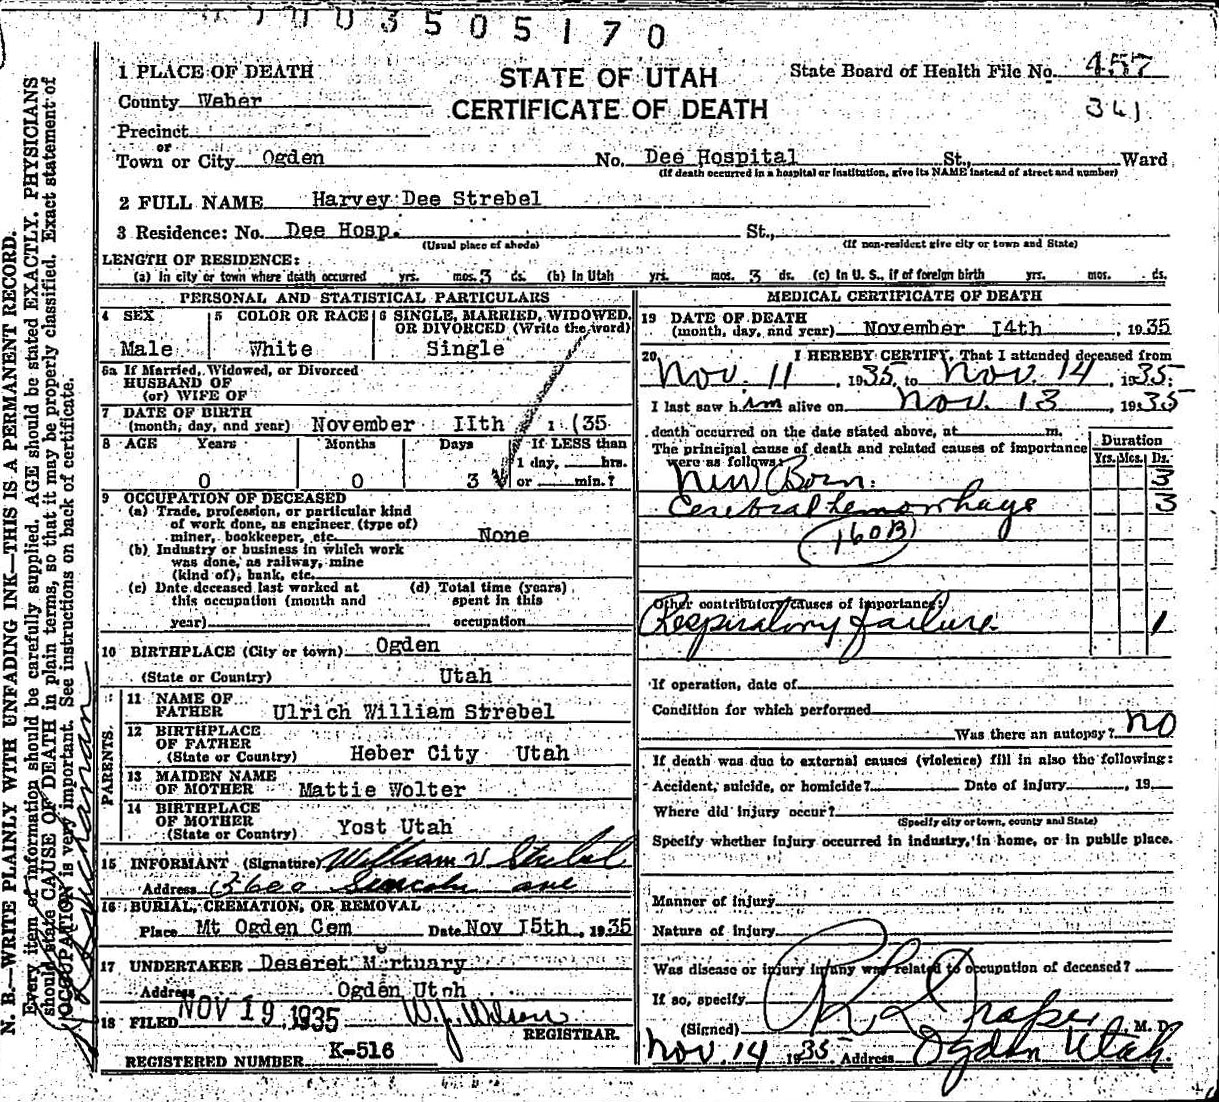 3505170
1 PLACE OF DEATH
STATE OF UTAH
CERTIFICATE OF DEATH
State Board of Health File No. 457
341
County Weber
Precinct
or
Town or City Ogden No. Dee Hospital St., Ward
(If death occurred in a hospital or institution, give its NAME instead of street and number)
2 FULL NAME Harvey Dee Strebel
3 Residence: No. Dee Hosp. St.,
(Usual place of abode) (If non-resident give city or town and State)
LENGTH OF RESIDENCE:
(a) In city or town where death occurred yrs. mos. 3 ds. (b) In Utah yrs. mos. 3 ds. (c) In U. S., if of foreign birth yrs. mos. ds.
PERSONAL AND STATISTICAL PARTICULARS
4 SEX 5 COLOR OR RACE 6 SINGLE, MARRIED, WIDOWED, OR DIVORCED (Write the word)
Male White Single
6a If Married, Widowed, or Divorced
HUSBAND OF
(or) WIFE OF
7 DATE OF BIRTH
(month, day, and year) November IIth 1 (35
8 AGE Years Months Days If LESS than
1 day, hrs.
0 0 3 or min.?
9 OCCUPATION OF DECEASED
(a) Trade, profession, or particular kind
of work done, as engineer (type of)
miner, bookkeeper, etc. None
(b) Industry or business in which work
was done, as railway, mine
(kind of), bank, etc.
(c) Date deceased last worked at (d) Total time (years)
this occupation (month and spent in this
year) occupation
10 BIRTHPLACE (City or town) Ogden
(State or Country) Utah
PARENTS.
11 NAME OF
FATHER Ulrich William Strebel
12 BIRTHPLACE
OF FATHER
(State or Country) Heber City Utah
13 MAIDEN NAME
OF MOTHER Mattie Wolter
14 BIRTHPLACE
OF MOTHER
(State or Country) Yost Utah
15 INFORMANT (Signature) William U Strebel
Address 3660 Lincoln ave
16 BURIAL, CREMATION, OR REMOVAL
Place Mt Ogden Cem Date Nov I5th, 1935
17 UNDERTAKER Deseret Mortuary
Address Ogden Utah
18 FILED NOV 19 1935 W. J. Wilson
REGISTRAR.
REGISTERED NUMBER K-516
MEDICAL CERTIFICATE OF DEATH
19 DATE OF DEATH
(month, day, and year) November I4th, 1935
20 I HEREBY CERTIFY, That I attended deceased from
Nov. 11, 1935, to Nov. 14, 1935.
I last saw him alive on Nov. 13, 1935
death occurred on the date stated above, at m.
The principal cause of death and related causes of importance
were as follows:
Duration
Yrs. Mos. Ds.
New Born. 3
Cerebral hemorrhage 3
160B
Other contributory causes of importance:
Respiratory failure. 1
If operation, date of
Condition for which performed
Was there an autopsy? no
If death was due to external causes (violence) fill in also the following:
Accident, suicide, or homicide? Date of injury, 19
Where did injury occur?
(Specify city or town, county and State)
Specify whether injury occurred in industry, in home, or in public place.
Manner of injury
Nature of injury
Was disease or injury in any way related to occupation of deceased?
If so, specify
(Signed) R L Draper, M. D.
Nov. 14 1935 Address Ogden Utah.
N. B.—WRITE PLAINLY WITH UNFADING INK—THIS IS A PERMANENT RECORD.
Every item of information should be carefully supplied. AGE should be stated EXACTLY. PHYSICIANS
should state CAUSE OF DEATH in plain terms, so that it may be properly classified. Exact statement of
OCCUPATION is very important. See instructions on back of certificate.